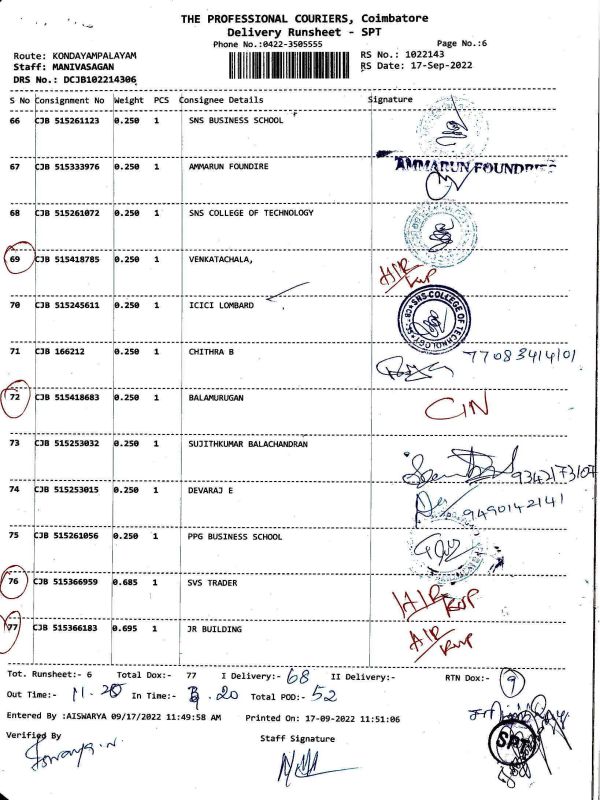 THE PROFESSIONAL COURIERS, Coimbatore
Delivery Runsheet - SPT
Phone No.:0422-3505555 Page No.:6
Route: KONDAYAMPALAYAM RS No.: 1022143
Staff: MANIVASAGAN RS Date: 17-Sep-2022
DRS No.: DCJB102214306
S No Consignment No Weight PCS Consignee Details Signature
66 CJB 515261123 0.250 1 SNS BUSINESS SCHOOL
67 CJB 515333976 0.250 1 AMMARUN FOUNDIRE AMMARUN FOUNDRIE
68 CJB 515261072 0.250 1 SNS COLLEGE OF TECHNOLOGY
69 CJB 515418785 0.250 1 VENKATACHALA,
70 CJB 515245611 0.250 1 ICICI LOMBARD SNS COLLEGE OF TECHNOLOGY
71 CJB 166212 0.250 1 CHITHRA B 7708341401
72 CJB 515418683 0.250 1 BALAMURUGAN
73 CJB 515253032 0.250 1 SUJITHKUMAR BALACHANDRAN
74 CJB 515253015 0.250 1 DEVARAJ E 9490142141
75 CJB 515261056 0.250 1 PPG BUSINESS SCHOOL
76 CJB 515366959 0.685 1 SVS TRADER
77 CJB 515366183 0.695 1 JR BUILDING
Tot. Runsheet:- 6 Total Dox:- 77 I Delivery:- 68 II Delivery:- RTN Dox:- 9
Out Time:- 11.20 In Time:- .20 Total POD:- 52
Entered By :AISWARYA 09/17/2022 11:49:58 AM Printed On: 17-09-2022 11:51:06
Verified By Staff Signature
SPT